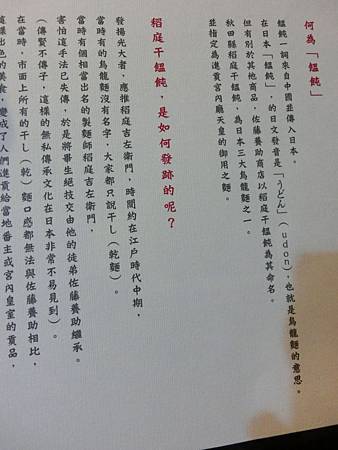 何為「饂飩」
饂飩一詞來自中國並傳入日本。
在日本「饂飩」的日文發音是「うどん」(udon)，也就是烏龍麵的意思。
但有別於其他商品，佐藤養助商店以稻庭干饂飩為其命名。
秋田縣稻庭干饂飩，為日本三大烏龍麵之一。
並指定為進貢宮內廳天皇的御用之麵。
稻庭干饂飩，是如何發跡的呢？
發揚光大者，應推稻庭吉左衛門，時間約在江戶時代中期，
當時的烏龍麵沒有名字，大家都只說干し(乾麵)。
當時有個相當出名的製麵師稻庭吉左衛門，
害怕這手法已失傳，於是將畢生絕技交由他的徒弟佐藤養助繼承。
(傳賢不傳子，這樣的無私傳承文化在日本非常不易見到)。
在當時，市面上所有的干し(乾)麵口感都無法與佐藤養助相比，
這樣出色的美食，變成了人們進貢給當地番主或宮內皇室的貢品，